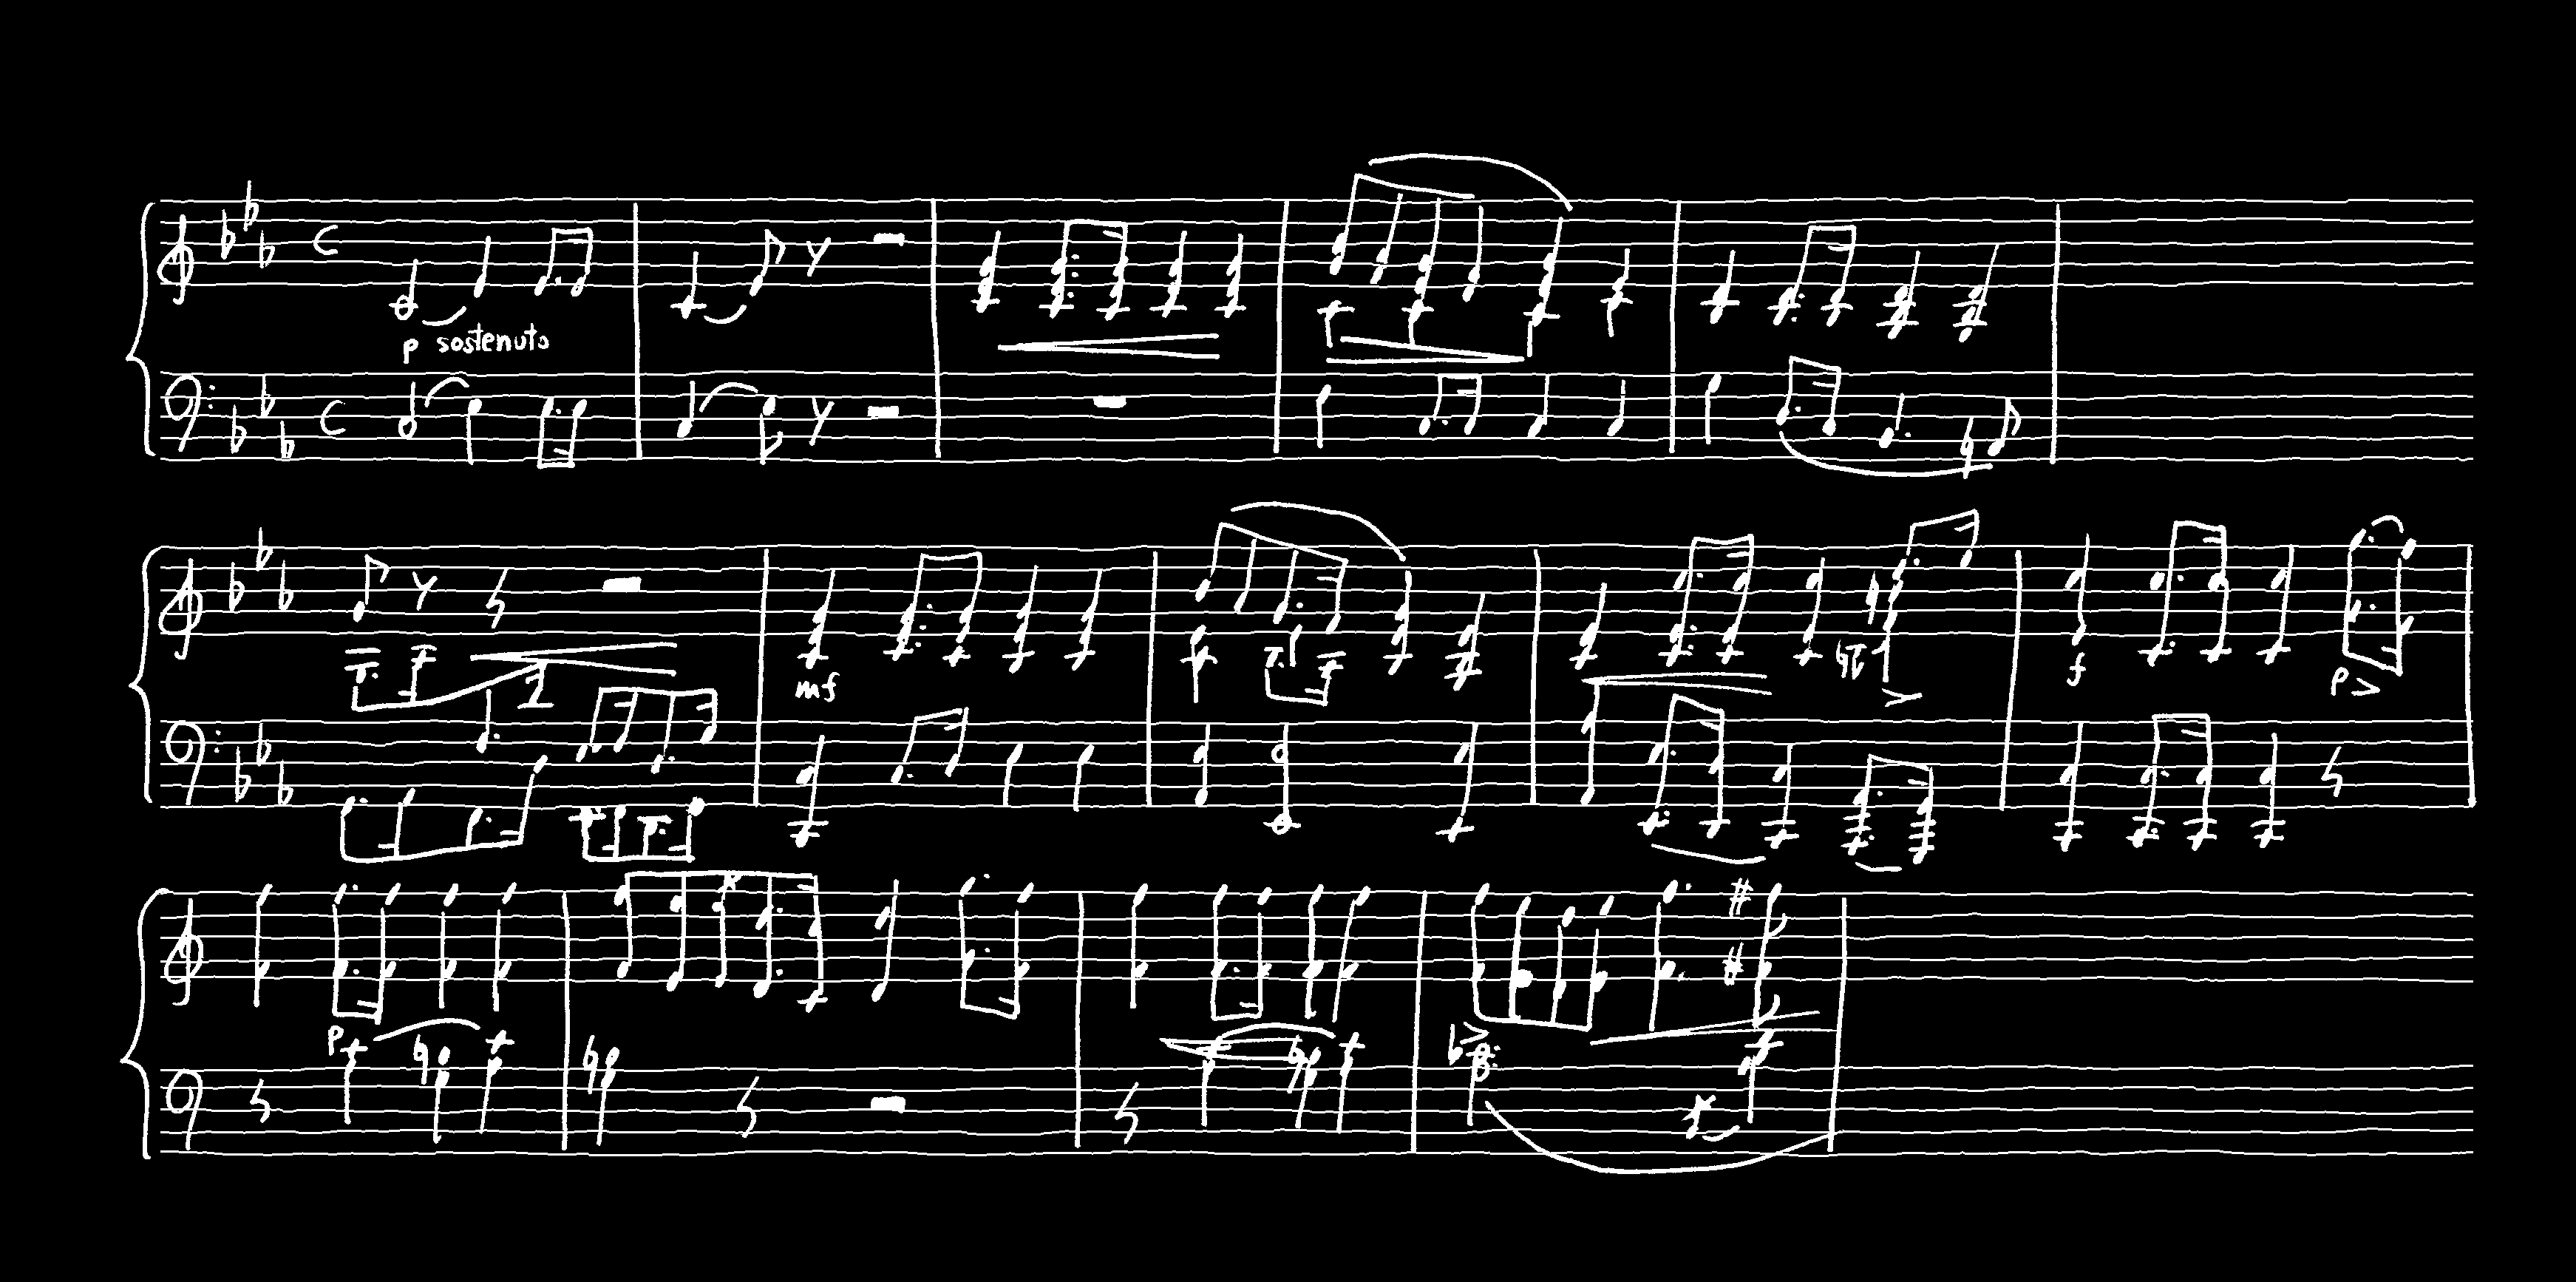 p sostenuto
mf
f
p
p